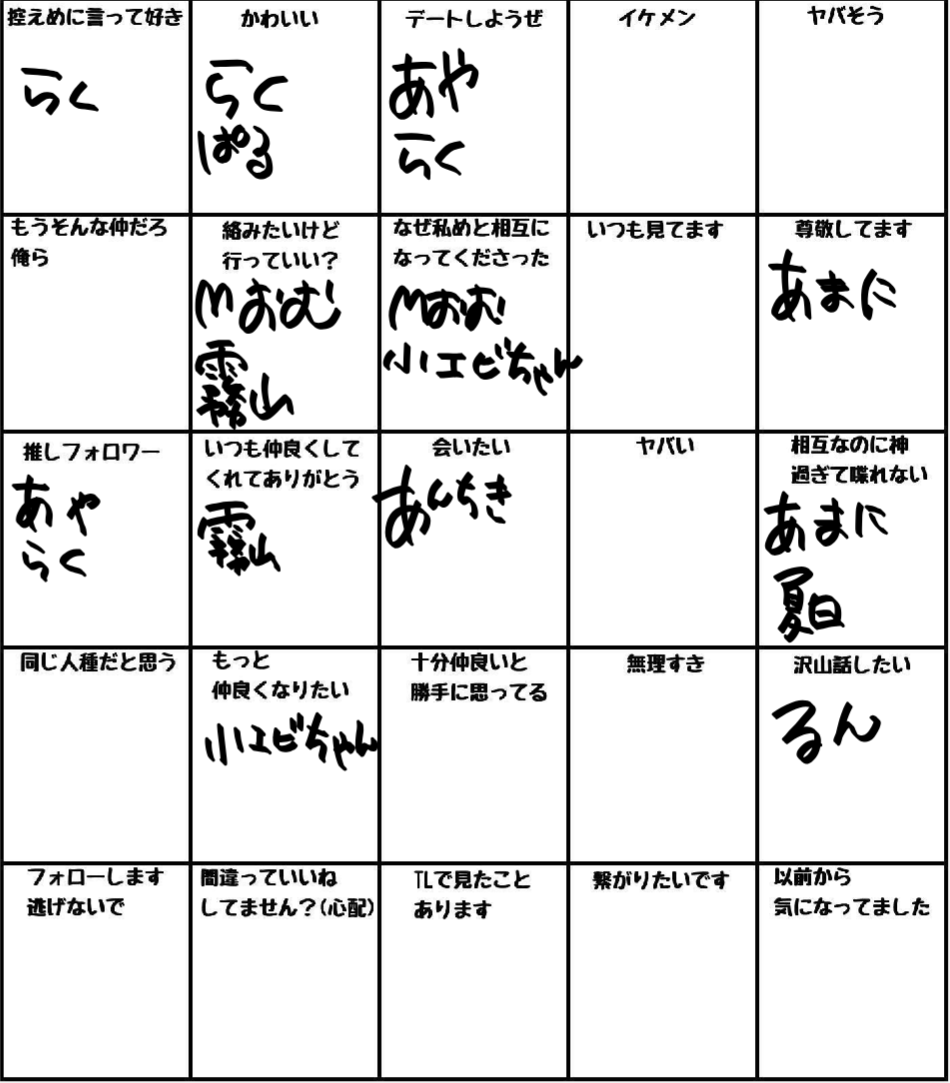 控えめに言って好き
らく
かわいい
らく
ぱる
デートしようぜ
あや
らく
イケメン
ヤバそう
もうそんな仲だろ
俺ら
絡みたいけど
行っていい？
Mおむ
霧山
なぜ私めと相互に
なってくださった
Mおむ
小エビちゃん
いつも見てます
尊敬してます
あまに
推しフォロワー
あや
らく
いつも仲良くして
くれてありがとう
霧山
会いたい
あんちき
ヤバい
相互なのに神
過ぎて喋れない
あまに
夏白
同じ人種だと思う
もっと
仲良くなりたい
小エビちゃん
十分仲良いと
勝手に思ってる
無理すき
沢山話したい
るん
フォローします
逃げないで
間違っていいね
してません？(心配)
TLで見たこと
あります
繋がりたいです
以前から
気になってました